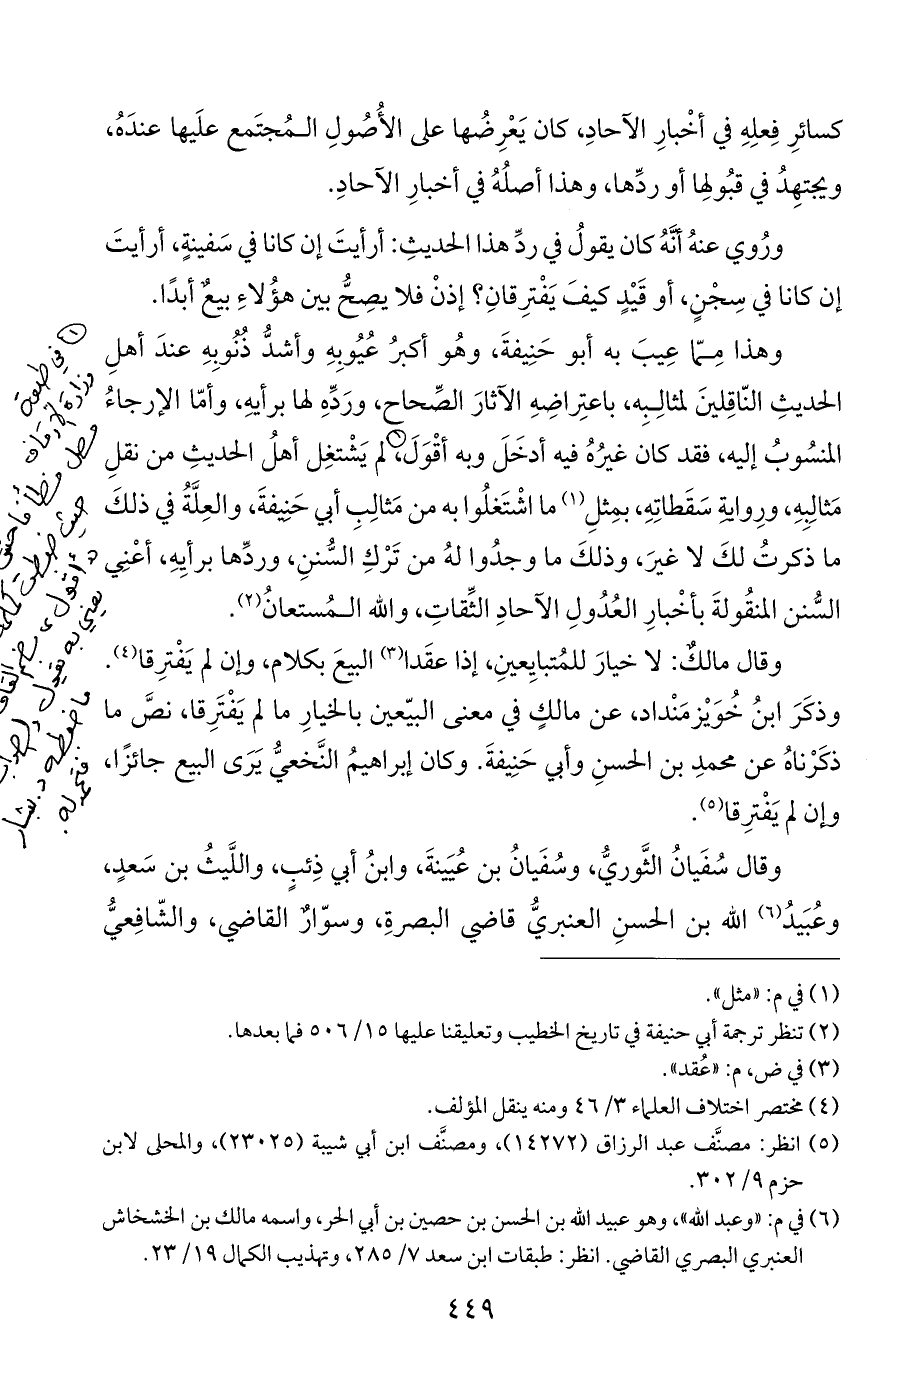 كسائرِ فِعلِهِ في أخْبارِ الآحادِ، كان يَعْرِضُها على الأُصُولِ الـمُجتَمع علَيها عندَهُ،
ويجتهِدُ في قبُولِها أو ردِّها، وهذا أصلُهُ في أخبارِ الآحادِ.
ورُوي عنهُ أنَّهُ كان يقولُ في ردِّ هذا الحديثِ: أرأيتَ إن كانا في سَفينةٍ، أرأيتَ
إن كانا في سِجْنٍ، أو قَيْدٍ كيفَ يَفْترِقانِ؟ إذنْ فلا يصِحُّ بين هؤُلاءِ بيعٌ أبدًا.
وهذا مِـمّا عِيبَ به أبو حَنِيفةَ، وهُو أكبرُ عُيُوبِهِ وأشدُّ ذُنُوبِهِ عندَ أهلِ
الحديثِ النّاقِلينَ لمثالِـبِه، باعتراضِهِ الآثارَ الصِّحاح، وردِّهِ لها برأيِهِ، وأمّا الإرجاءُ
المنسُوبُ إليه، فقد كان غيرُهُ فيه أدخَلَ وبه أقْوَلَ، لم يَشْتغِل أهلُ الحديثِ من نقلِ
مَثالبِهِ، وروايةِ سَقَطاتِهِ، بمِثلِ(١) ما اشْتَغلُوا به من مَثالِبِ أبي حَنِيفةَ، والعِلَّةُ في ذلكَ
ما ذكرتُ لكَ لا غيرَ، وذلكَ ما وجدُوا لهُ من تَرْكِ السُّننِ، وردِّها برأيِهِ، أعْنِي
السُّنن المنقُولةَ بأخْبارِ العُدُولِ الآحادِ الثِّقاتِ، والله الـمُستعانُ(٢).
وقال مالكٌ: لا خيارَ للمُتبايِعينِ، إذا عقَدا(٣) البيعَ بكلام، وإن لم يَفْترِقا(٤).
وذكَرَ ابنُ خُوَيْزمَنْداد، عن مالكٍ في معنى البيّعين بالخيارِ ما لم يَفْترِقا، نصَّ ما
ذكَرْناهُ عن محمدِ بن الحسنِ وأبي حَنِيفةَ. وكان إبراهيمُ النَّخعيُّ يَرَى البيع جائزًا،
وإن لم يَفْترِقا(٥).
وقال سُفيانُ الثَّوريُّ، وسُفيانُ بن عُيَينةَ، وابنُ أبي ذِئبٍ، واللَّيثُ بن سَعدٍ،
وعُبَيدُ(٦) الله بن الحسنِ العنبريُّ قاضِي البصرةِ، وسوّارٌ القاضِي، والشّافِعيُّ
(١) في م: «مثل».
(٢) تنظر ترجمة أبي حنيفة في تاريخ الخطيب وتعليقنا عليها ١٥/ ٥٠٦ فما بعدها.
(٣) في ض، م: «عُقد».
(٤) مختصر اختلاف العلماء ٣/ ٤٦ ومنه ينقل المؤلف.
(٥) انظر: مصنَّف عبد الرزاق (١٤٢٧٢)، ومصنَّف ابن أبي شيبة (٢٣٠٢٥)، والمحلى لابن
حزم ٩/ ٣٠٢.
(٦) في م: «وعبد الله»، وهو عبيد الله بن الحسن بن حصين بن أبي الحر، واسمه مالك بن الخشخاش
العنبري البصري القاضي. انظر: طبقات ابن سعد ٧/ ٢٨٥، وتهذيب الكمال ١٩/ ٢٣.
٤٤٩
(١) في طبعة
وزارة
حيث ضبطت